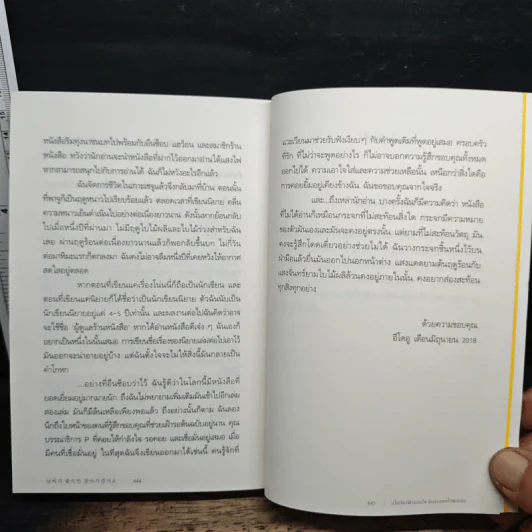 หนังสือริมทุ่งนาชนบทไปพร้อมกับอึนซ็อบ แฮวอน และสมาชิกร้าน
หนังสือ หวังว่านักอ่านจะนำหนังสือที่ฝากไว้ออกมาอ่านใต้แสงไฟ
หากสามารถสนุกไปกับการอ่านได้ ฉันก็ไม่หวังอะไรอีกแล้ว
ฉันจัดการชีวิตในเกาะเชจูแล้วจึงกลับมาที่บ้าน ตอนนั้น
ที่พาจูก็เป็นฤดูหนาวไปเรียบร้อยแล้ว ตลอดเวลาที่เขียนนิยาย คลื่น
ความหนาวเย็นดำเนินไปอย่างต่อเนื่องยาวนาน ดังนั้นหากย้อนกลับ
ไปเมื่อหนึ่งปีที่ผ่านมา ไม่มีฤดูใบไม้ผลิและใบไม้ร่วงสำหรับฉัน
เลย ผ่านฤดูร้อนต่อเนื่องยาวนานแล้วก็พอกลับขึ้นบก ไม่กี่วัน
ต่อมาหิมะแรกก็ตกลงมา ฉันคงไม่อาจลืมหนึ่งปีที่เคยหวังให้อากาศ
สดใสอยู่ตลอด
หากตอนที่เขียนแค่เรื่องโน่นนี่ก็ถือเป็นนักเขียน และ
ตอนที่เขียนแค่นิยายก็ได้ชื่อว่าเป็นนักเขียนนิยาย ตัวฉันนับเป็น
นักเขียนนิยายอยู่แค่ 4-5 ปีเท่านั้น และผลงานต่อไปฉันคิดว่าอาจ
จะใช้ชื่อ 'ผู้ดูแลร้านหนังสือ' หากได้อ่านหนังสือดีเจ๋ง ๆ ฉันเองก็
อยากเป็นหนึ่งในนั้นเสมอ การเขียนชื่อเรื่องของนิยายเล่มต่อไปเอาไว้
มันออกจะน่าอายอยู่บ้าง แต่ฉันตั้งใจจะไม่ให้สิ่งนี้มันกลายเป็น
คำโกหก
...อย่างที่อึนซ็อบว่าไว้ ฉันรู้ดีว่าในโลกนี้มีหนังสือที่
ยอดเยี่ยมอยู่มากมายนัก ถึงฉันไม่พยายามเพิ่มเติมมันเข้าไปอีกเล่ม
สองเล่ม มันก็มีล้นเหลือเพียงพอแล้ว ถึงอย่างนั้นก็ตาม ฉันลอง
นึกถึงใบหน้าของคนที่รู้สึกขอบคุณที่ช่วยเฝ้ารอต้นฉบับอยู่นาน คุณ
บรรณาธิการ P ที่คอยให้กำลังใจ รอคอย และเชื่อมั่นอยู่เสมอ เมื่อ
มีคนที่เชื่อมั่นอยู่ ในที่สุดฉันจึงเขียนออกมาได้เช่นนี้ คนรู้จักที่
444
แวะเวียนมาช่วยรับฟังเงียบๆ กับคำพูดเดิมที่พูดอยู่เสมอ ครอบครัว
ที่รัก ที่ไม่ว่าจะพูดอย่างไร ก็ไม่อาจบอกความรู้สึกขอบคุณทั้งหมด
ออกไปได้ ความเอาใจใส่และความช่วยเหลือนั้น เหนือกว่าสิ่งใดคือ
การคอยยิ้มอยู่เคียงข้างฉัน ฉันขอขอบคุณจากใจจริง
และ...ถึงเหล่านักอ่าน บางครั้งฉันก็มีความคิดว่า หนังสือ
ที่ไม่ได้อ่านก็เหมือนกระจกที่ไม่สะท้อนสิ่งใด กระจกมีความหมาย
ลงตัวด้วยมันเองและมันจะคงอยู่ตรงนั้น แต่ยามที่ไม่สะท้อนวัตถุ มัน
คงจะรู้สึกโดดเดี่ยวอย่างช่วยไม่ได้ ฉันวางกระจกชิ้นหนึ่งไว้บน
ฝ่ามือแล้วยื่นมันออกไปนอกหน้าต่าง แสงแดดยามต้นฤดูร้อนกับ
แสงจันทร์ยามใบไม้ผลิล้วนคงอยู่ภายในนั้น คงอยากส่องสะท้อน
ทุกสิ่งทุกอย่าง
ด้วยความขอบคุณ
อีโดอู เดือนมิถุนายน 2018